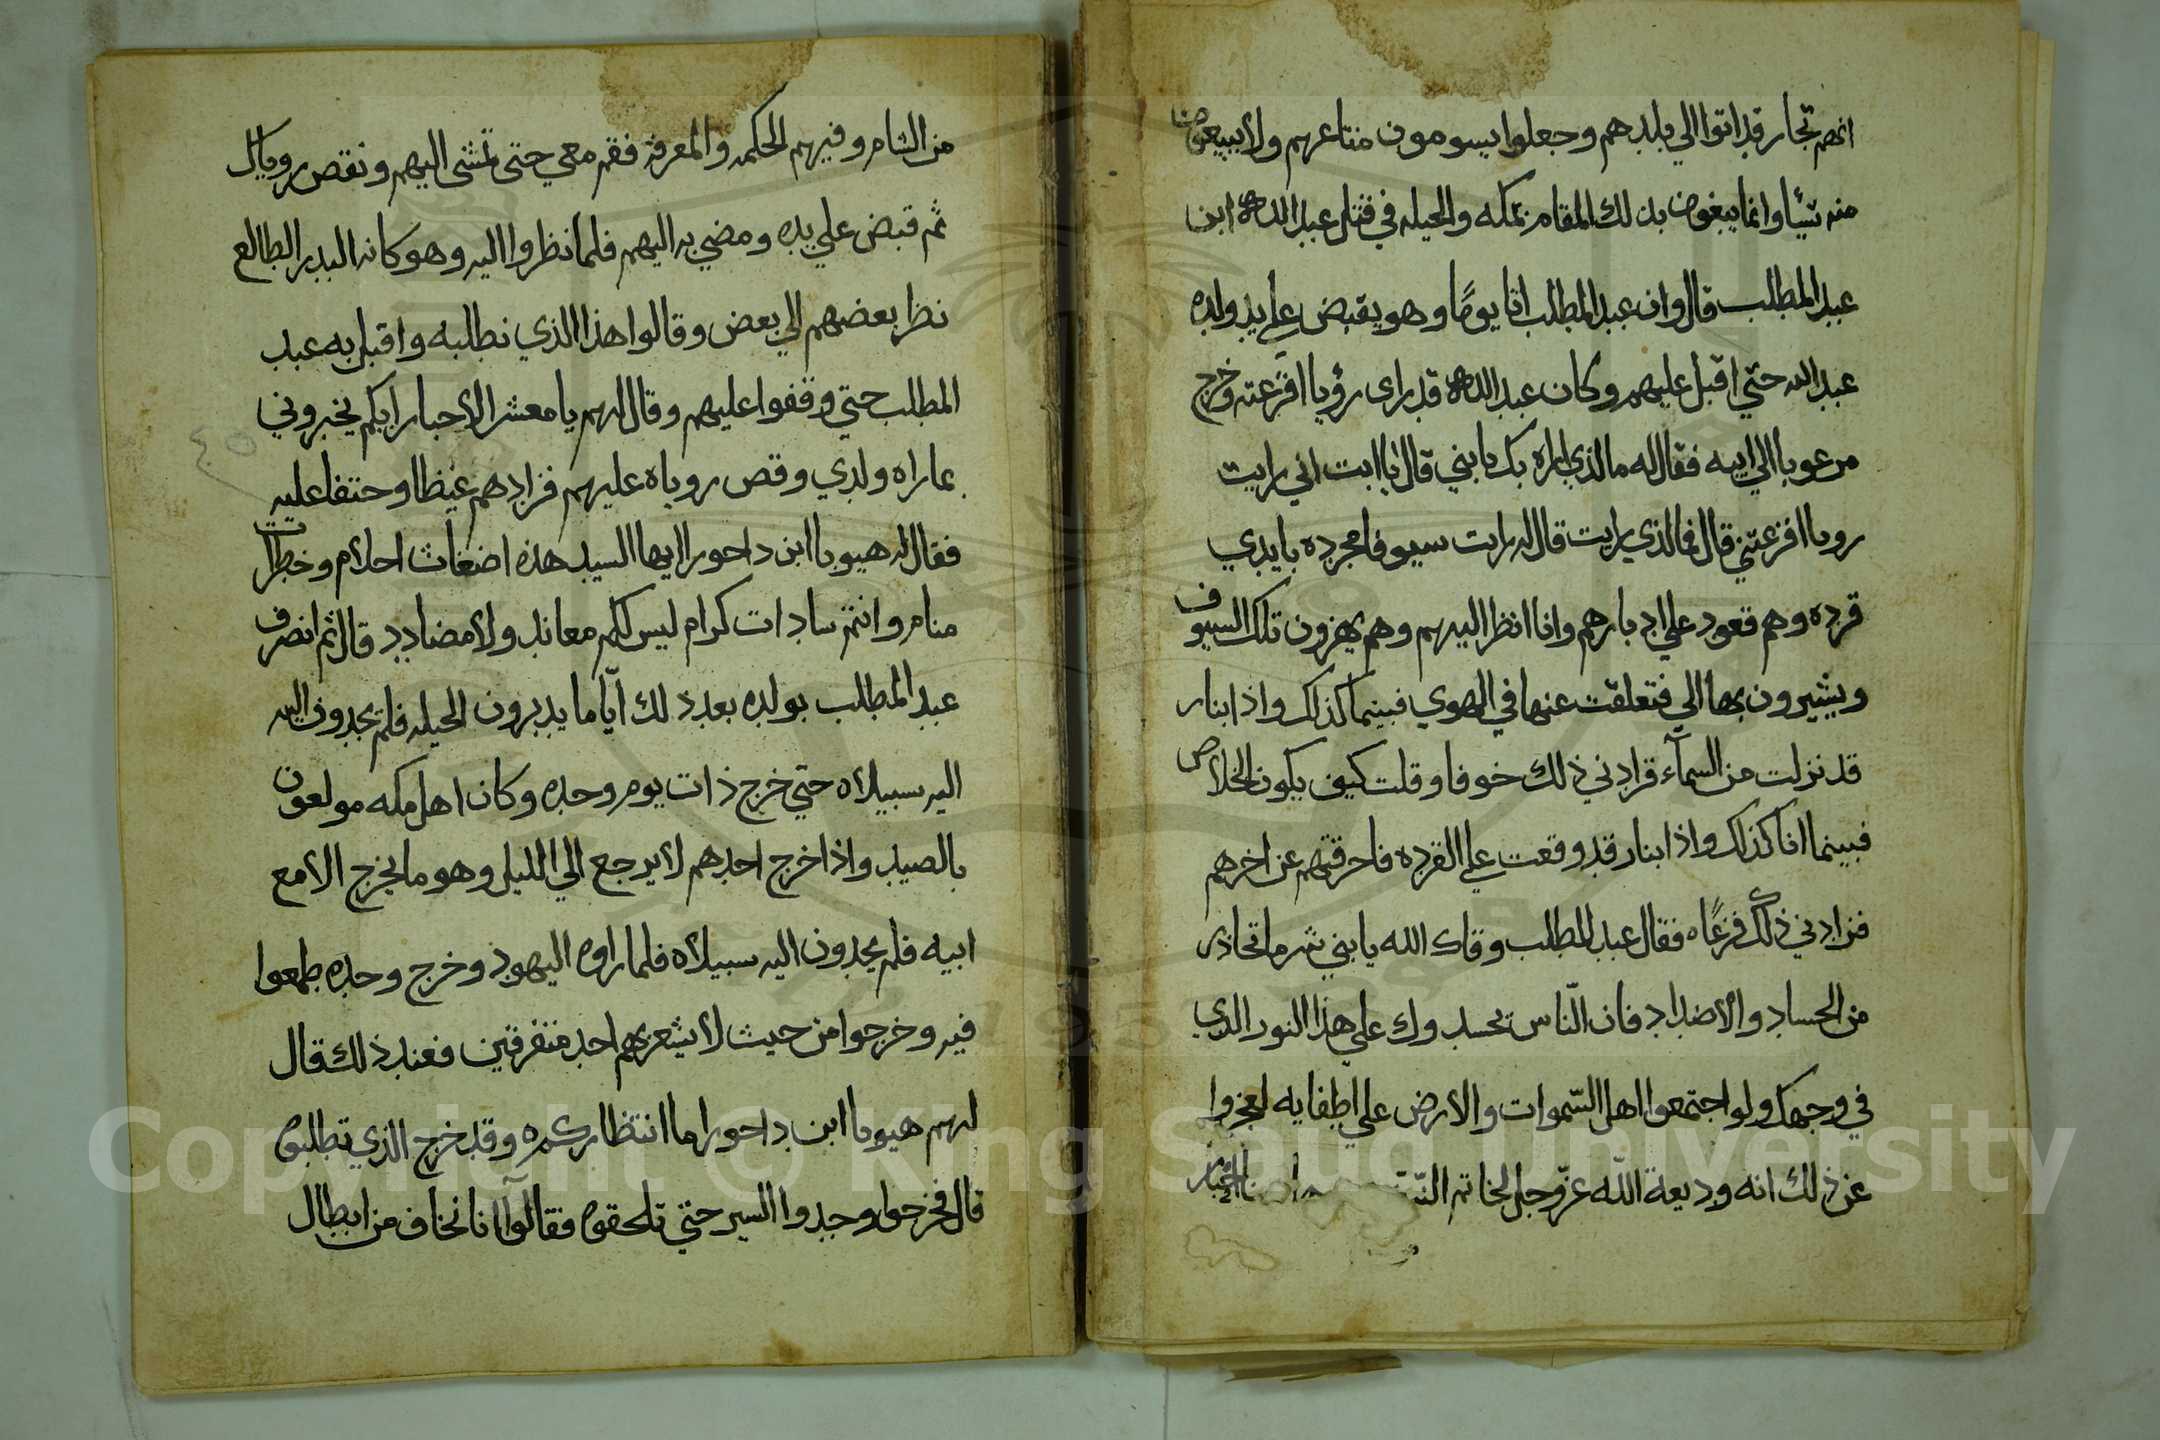 انهم تجار قد اتوا الي بلدهم وجعلوا يسومون متاعهم ولا يبيعون
منه شيئا وانما يبغون بذلك المقام بمكه والحيله في قتل عبد الله ابن
عبد المطلب قال وان عبد المطلب اتا يوما وهو يقبض علي يد ولده
عبد الله حتي اقبل عليهم وكان عبد الله قد راى رؤيا افزعته وخرج
مرعوبا الي ابيه فقال له ما الذي اراه بك يا بني قال يا ابت اني رايت
رويا افزعتني قال فما الذي رايت قال له رايت سيوفا مجرده بايدي
قرده وهم قعود علي ادبارهم وانا انظر اليهم وهم يهزون تلك السيوف
ويشيرون بها الي فتعلقت عنها في الهوي فبينما كذلك واذا بنار
قد نزلت من السمآء فزادني ذلك خوفا وقلت كيف يكون الخلاص
فبينما انا كذلك واذا بنار قد وقعت علي القرده فاحرقتهم عن اخرهم
فزادني ذلك فزعًا ه فقال عبد المطلب وقاك الله يا بني شر ما تحاذر
من الحساد والاضداد فان النّاس تحسدوك علي هذا النور الذي
في وجهك ولو اجتمعوا اهل السّموات والارض علي اطفايه لعجزوا
عن ذلك انه وديعة اللّه عزّ وجل لخاتم احبار
من الشام وفيهم الحكمه والمعرفه فقم معي حتى تمشى اليهم ونقص روياك
ثم قبض علي يده ومضي به اليهم فلما نظروا اليه وهو كانه البدر الطالع
نظر بعضهم الي بعض وقالوا هذا الذي نطلبه واقبل به عبد
المطلب حتي وقفوا عليهم وقال لهم يا معشر الاحبار اتيكم تخبروني
بما راه ولدي وقص روياه عليهم فزادهم غيظا وحتفا عليه
فقال له هيوبا ابن داحورا ايها السيد هذه اضغاث احلام وخطرات
منام وانتم سادات كرام ليس لكم معاند ولا مضادد قال ثم انصرف
عبد المطلب بولده بعد ذلك ايّاما يدبرون الحيله فلم يجدون اليه
اليه سبيلا ه حتي خرج ذات يوم وحده وكان اهل مكه مولعون
بالصيد واذا خرج احدهم لا يرجع الي الليل وهو ما يخرج الا مع
ابيه فلم يجدون اليه سبيلا ه فلما راوه اليهود وخرج وحده طمعوا
فيه وخرجوا من حيث لا يشعر بهم احد متفرقين فعند ذلك قال
لهم هيوبا ابن داحورا ما انتظاركم ه وقد خرج الذي تطلبون
قال فخرجوا وجدوا السير حتي تلحقوه فقالوا انا نخاف من ابطال
Copyright © King Saud University